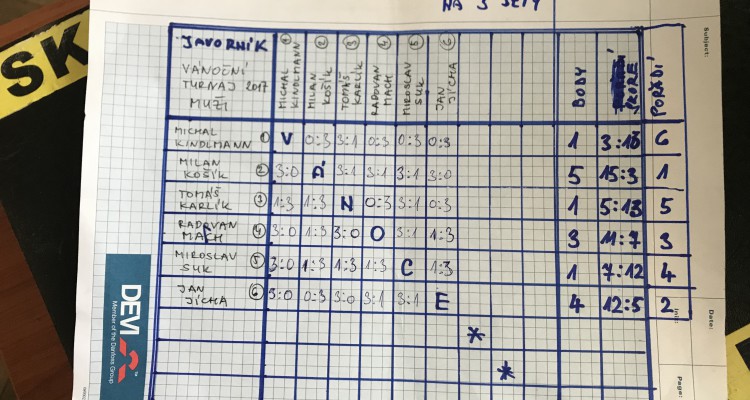 NA 3 SETY
SK
Subject:
JAVORNÍK
VÁNOČNÍ
TURNAJ 2017
MUŽI
① MICHAL KINDLMANN
② MILAN KOŠÍK
③ TOMÁŠ KARLÍK
④ RADOVAN MACH
⑤ MIROSLAV SUK
⑥ JAN JÍCHA
BODY
SKÓRE
POŘADÍ
MICHAL KINDLMANN ① V 0:3 3:1 0:3 0:3 0:3 1 3:13 6
MILAN KOŠÍK ② 3:0 Á 3:1 3:1 3:1 3:0 5 15:3 1
TOMÁŠ KARLÍK ③ 1:3 1:3 N 0:3 3:1 0:3 1 5:13 5
RADOVAN MACH ④ 3:0 1:3 3:0 O 3:1 1:3 3 11:7 3
MIROSLAV SUK ⑤ 3:0 1:3 1:3 1:3 C 1:3 1 7:12 4
JAN JÍCHA ⑥ 3:0 0:3 3:0 3:1 3:1 E 4 12:5 2
*
*
DEVI
Member of the Danfoss Group
Date:
Page: